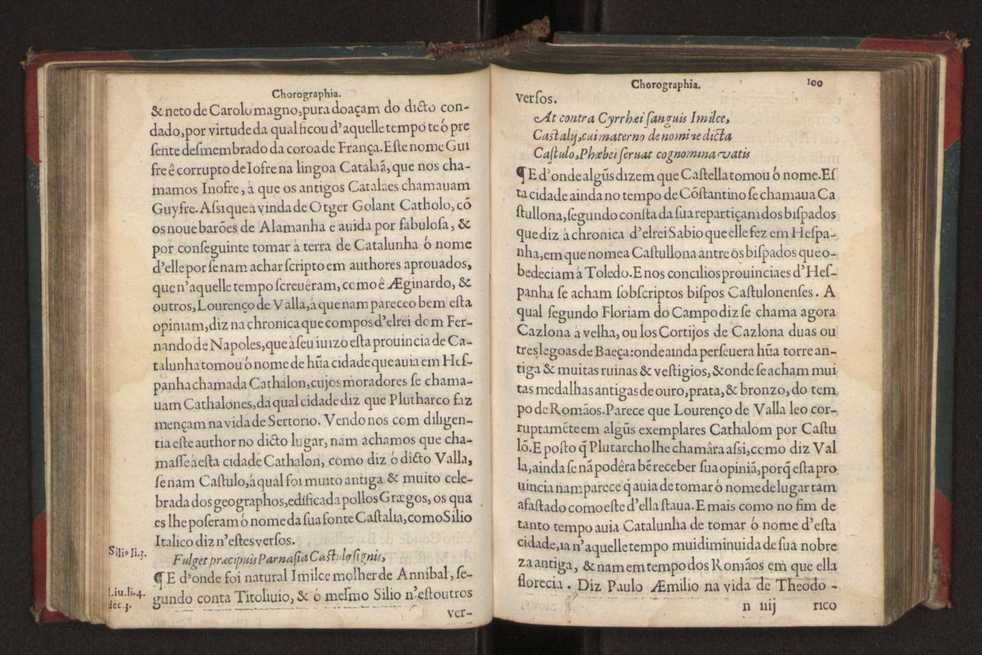 Chorographia.
& neto de Carolo magno, pura doaçam do dicto con-
dado, por virtude da qual ficou d'aquelle tempo teó pre
sente desmembrado da coroa de França. Este nome Gui
fre ê corrupto de Iofre na lingoa Catalaã, que nos cha-
mamos Inofre, à que os antigos Catalães chamauam
Guyfre. Assi que a vinda de Otger Golant Catholo, cõ
os noue barões de Alamanha e auida por fabulosa, &
por conseguinte tomar à terra de Catalunha ó nome
d'elle por se nam achar scripto em authores aprouados,
que n'aquelle tempo screuêram, como ê Æginardo, &
outros, Lourenço de Valla, à que nam pareceo bem esta
opiniam, diz na chronica que compos d'elrei dom Fer-
nando de Napoles, que à seu iuizo esta prouincia de Ca-
talunha tomou ó nome de hũa cidade que auia em Hes-
panha chamada Cathalon, cujos moradores se chama-
uam Cathalones, da qual cidade diz que Plutharco faz
mençam na vida de Sertorio. Vendo nos com diligen-
tia este author no dicto lugar, nam achamos que cha-
masse à esta cidade Cathalon, como diz ó dicto Valla,
senam Castulo, à qual foi muito antiga & muito cele-
brada dos geographos, edificada pollos Grægos, os qua
es lhe poseram ó nome da sua fonte Castalia, como Silio
Italico diz n'estes versos.
Silio li.3.
Fulget præcipuis Parnasia Castulo signis,
¶ E d'onde foi natural Imilce molher de Annibal, se-
Liu. li. 4.
dec. 3.
gundo conta Titoliuio, & ó mesmo Silio n'estoutros
ver-
Chorographia. 100
versos.
At contra Cyrrhæi sanguis Imilce,
Castalij, cui materno de nomine dicta
Castulo, Phœbei seruat cognomina vatis
¶ E d'onde algũs dizem que Castella tomou ó nome. Es
ta cidade ainda no tempo de Cõstantino se chamaua Ca
stullona, segundo consta da sua repartiçam dos bispados
que diz à chronica d'elrei Sabio que elle fez em Hespa-
nha, em que nomea Castullona antre os bispados que o-
bedeciam à Toledo. E nos concilios prouinciaes d'Hes-
panha se acham sobscriptos bispos Castulonenses. A
qual segundo Floriam do Campo diz se chama agora
Cazlona à velha, ou los Cortijos de Cazlona duas ou
tres legoas de Baeça: onde ainda perseuera hũa torre an-
tiga & muitas ruinas & vestigios, & onde se acham mui
tas medalhas antigas de ouro, prata, & bronzo, do tem
po de Romãos. Parece que Lourenço de Valla leo cor-
ruptamẽte em algũs exemplares Cathalom por Castu
lõ. E posto q̃ Plutarcho lhe chamâra assi, como diz Val
la, ainda se nã podêra bẽ receber sua opiniã, porq̃ esta pro
uincia nam parece q̃ auia de tomar ó nome de lugar tam
afastado como este d'ella staua. E mais como no fim de
tanto tempo auia Catalunha de tomar ó nome d'esta
cidade, ia n'aquelle tempo mui diminuida de sua nobre
za antiga, & nam em tempo dos Romãos em que ella
florecia. Diz Paulo Æmilio na vida de Theodo-
n iiij rico